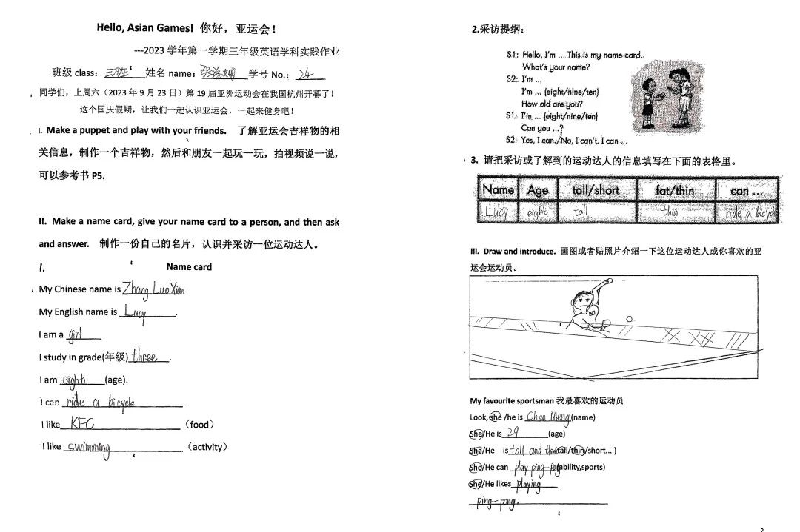 Hello, Asian Games! 你好，亚运会！
---2023 学年第一学期三年级英语学科实践作业
班级 class: 姓名 name: 学号 No.: 24
同学们，上周六（2023 年 9 月 23 日）第 19 届亚务运动会在我国杭州开幕了！
这个国庆假期，让我们一起认识亚运会，一起来健身吧！
I. Make a puppet and play with your friends. 了解亚运会吉祥物的相
关信息，制作一个吉祥物，然后和朋友一起玩一玩，拍视频说一说，
可以参考书 P5.
II. Make a name card, give your name card to a person, and then ask
and answer. 制作一份自己的名片，认识并采访一位运动达人。
1.
Name card
My Chinese name is Zhang Luo Xuan
My English name is Lucy.
I am a girl
I study in grade(年级) three.
I am eight (age).
I can ride a bicycle
I like KFC (food)
I like swimming (activity)
2.采访提纲：
S1: Hello, I'm ....This is my name card..
What's your name?
S2: I'm ...
I'm ... (eight/nine/ten)
How old are you?
S1: I'm, ... (eight/nine/ten)
Can you ...?
S2: Yes, I can./No, I can't. I can ...
3. 请把采访或了解到的运动达人的信息填写在下面的表格里。
Name Age tall/short fat/thin can ...
Lucy eight tall thin ride a bicycle
III. Draw and introduce. 画图或者贴照片介绍一下这位运动达人或你喜欢的亚
运会运动员。
My favourite sportsman 我最喜欢的运动员
Look, she /he is (name)
She/He is 29 (age)
She/He is tall and thin (tall/thin/short... )
She/He can play ping-pong (ability,sports)
She/He likes playing
ping-pong.
2